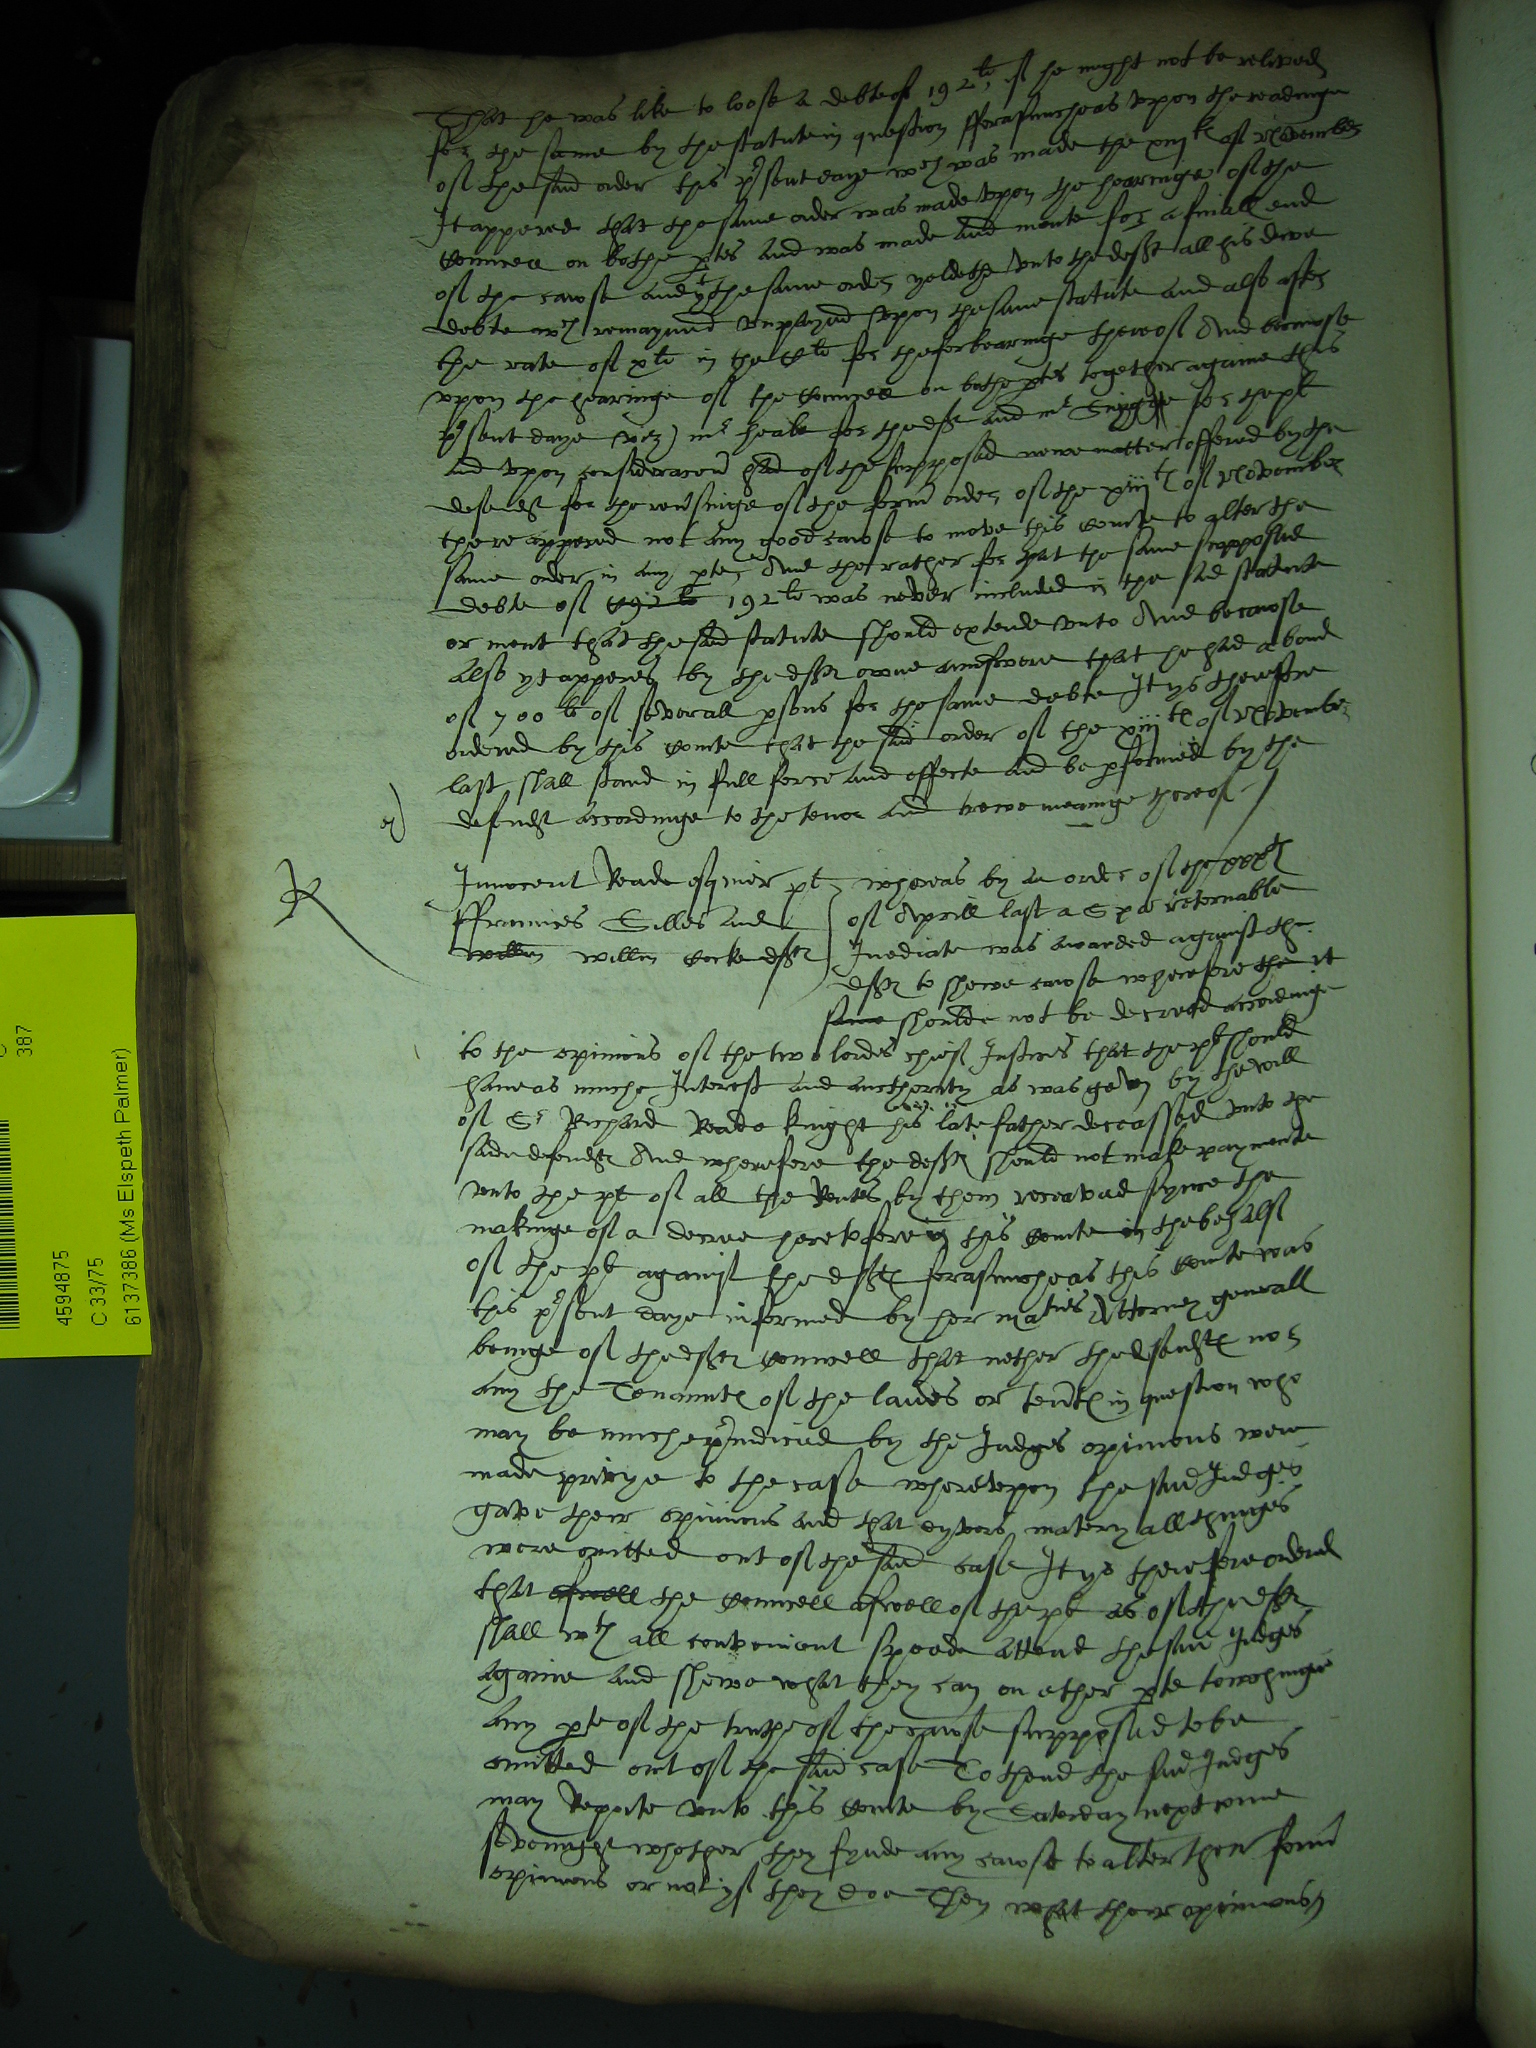 That he was like to loose a debte of 192li, if he might not be relived
for the same by the statute in question fforasmuche as upon the readinge
of the said order this p'sent daye wch was made the xiijth of November
It appered that the same order was made upon the hearinge of the
Councell on bothe ptes and was made and mente for a finall end
of the cawse and yt the same order yeldeth unto the deft all his dewe
debte wch remayned unpayed upon the same statute and also after
the rate of xli in the Cli for the forbearinge thereof And becawse
upon the hearinge of the Councell on bothe ptes together againe this
p'sent daye (viz) mr heale for the deft and mr Snygge for the plt
and upon consideracon had of the supposed newe matter offered by the
defendt for the reversinge of the form' order of the xiijth of November
there appered not any good cawse to move this Courte to alter the
same order in any pte, And the rather for that the same supposed
debte of 192li 192li was never included in the said statute
or ment that the said statute should extende unto And becawse
also yt apperes by the defts owne aunswere that he had a bond
of 700li of severall psons for the same debte It ys therefore
ordered by this Courte that the said order of the xiijth of November
last shall stand in full force and effecte and be pformed by the
defendt accordinge to the tenor and trewe meaninge thereof
R
Innocent Reade esquier plt
ffraunces Gilles and
willm willm Cocke defts
whereas by an order of the xxxth
of Aprill last a Spa retornable
Imediate was awarded against the
defts to shewe cawse wherefore the it
same shoulde not be decreed accordinge
to the opinions of the two lordes chief Justices that the plt should
have as muche Interest and aucthority as was geven by the will
of Sr Richard Reade knight his late father deceassed unto the
said defendts And wherefore the defts should not make paymente
unto the plt of all the Rentes by them receaved synce the
makinge of a decree heretofore in this Courte in the behalf
of the plt against the defts forasmuche as this Courte was
this p'sent daye informed by her maties Attorney generall
beinge of the defts Councell that nether the defendts nor
any the Tenaunts of the landes or tents in question who
may be muche p'iudiced by the Judges opinions were
made privye to the case whereupon the said Judges
gave their opinions and that dyvers materyall thinges
were omitted out of the said case It ys therefore ordered
that aswell the Councell aswell of the plt as of the defts
shall wth all convenient speede attend the said Judges
againe and shewe what they can on ether pte towchinge
any pte of the truthe of the cawse supposed to be
omitted out of the said case To thend the said Judges
may Reporte unto this Courte by Saterday next come
sevennight whether they fynde any cawse to alter their form'
opinions or not yf they doe Then what their opinions
4594875
C 33/75
6137386 (Ms Elspeth Palmer)
387